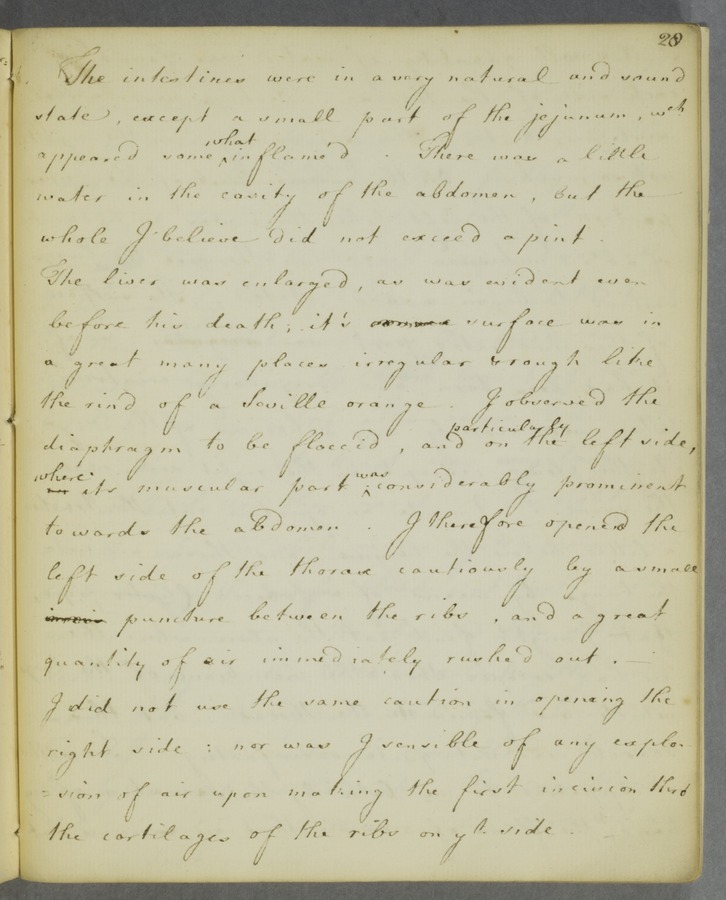 20
The intestines were in a very natural and sound
state, except a small part of the jejunum, wch
appeared some what inflame'd. There was a little
water in the cavity of the abdomen, but the
whole I believe did not exceed a pint.
The liver was enlarged, as was evident even
before his death; it's surface was in
a great many places irregular & rough like
the rind of a Seville orange. I observed the
diaphragm to be flaccid, and particularly on the left side,
where its muscular part was considerably prominent
towards the abdomen. I therefore opened the
left side of the thorax cautiously by a small
puncture between the ribs, and a great
quantity of air immediately rushed out. —
I did not use the same caution in opening the
right side: nor was I sensible of any explo-
=sion of air upon making the first incision thro'
the cartilages of the ribs on yt. side.